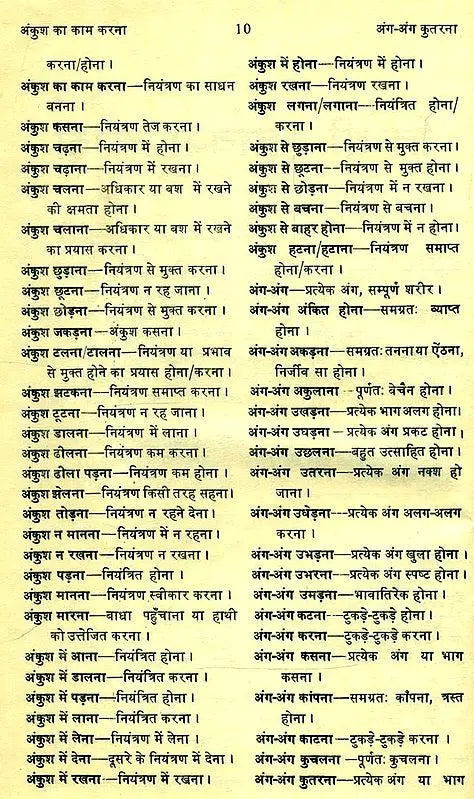 अंकुश का काम करना 10 अंग-अंग कुतरना
करना/होना ।
अंकुश का काम करना—नियंत्रण का साधन
बनना ।
अंकुश कसना—नियंत्रण तेज करना ।
अंकुश चढ़ना—नियंत्रण में होना ।
अंकुश चढ़ाना—नियंत्रण में रखना ।
अंकुश चलना—अधिकार या वश में रखने
की क्षमता होना ।
अंकुश चलाना—अधिकार या वश में रखने
का प्रयास करना ।
अंकुश छुड़ाना—नियंत्रण से मुक्त करना ।
अंकुश छूटना—नियंत्रण न रह जाना ।
अंकुश छोड़ना—नियंत्रण से मुक्त करना ।
अंकुश जकड़ना—अंकुश कसना ।
अंकुश टलना/टालना—नियंत्रण या प्रभाव
से मुक्त होने का प्रयास होना/करना ।
अंकुश झटकना—नियंत्रण समाप्त करना ।
अंकुश टूटना—नियंत्रण न रह जाना ।
अंकुश डालना—नियंत्रण में लाना ।
अंकुश ढीलना—नियंत्रण कम करना ।
अंकुश ढीला पड़ना—नियंत्रण कम होना ।
अंकुश झेलना—नियंत्रण किसी तरह सहना ।
अंकुश तोड़ना—नियंत्रण न रहने देना ।
अंकुश न मानना—नियंत्रण में न रहना ।
अंकुश न रखना—नियंत्रण न रखना ।
अंकुश पड़ना—नियंत्रित होना ।
अंकुश मानना—नियंत्रण स्वीकार करना ।
अंकुश मारना—बाधा पहुँचाना या हाथी
को उत्तेजित करना ।
अंकुश में आना—नियंत्रित होना ।
अंकुश में डालना—नियंत्रित करना ।
अंकुश में पड़ना—नियंत्रित होना ।
अंकुश में लाना—नियंत्रित करना ।
अंकुश में लेना—नियंत्रण में लेना ।
अंकुश में देना—दूसरे के नियंत्रण में देना ।
अंकुश में रखना—नियंत्रण में रखना ।
अंकुश में होना—नियंत्रण में होना ।
अंकुश रखना—नियंत्रण रखना ।
अंकुश लगना/लगाना—नियंत्रित होना/
करना ।
अंकुश से छुड़ाना—नियंत्रण से मुक्त करना ।
अंकुश से छूटना—नियंत्रण से मुक्त होना ।
अंकुश से छोड़ना—नियंत्रण में न रखना ।
अंकुश से बचना—नियंत्रण से बचना ।
अंकुश से बाहर होना—नियंत्रण में न होना ।
अंकुश हटना/हटाना—नियंत्रण समाप्त
होना/करना ।
अंग-अंग—प्रत्येक अंग, सम्पूर्ण शरीर ।
अंग-अंग अंकित होना—समग्रतः व्याप्त
होना ।
अंग-अंग अकड़ना—समग्रतः तनना या ऐंठना,
निर्जीव सा होना ।
अंग-अंग अकुलाना—पूर्णतः बेचैन होना ।
अंग-अंग उखड़ना—प्रत्येक भाग अलग होना ।
अंग-अंग उघड़ना—प्रत्येक अंग प्रकट होना ।
अंग-अंग उछलना—बहुत उत्साहित होना ।
अंग-अंग उतरना—प्रत्येक अंग नक्श हो
जाना ।
अंग-अंग उधेड़ना—प्रत्येक अंग अलग-अलग
करना ।
अंग-अंग उभड़ना—प्रत्येक अंग खुला होना ।
अंग-अंग उभरना—प्रत्येक अंग स्पष्ट होना ।
अंग-अंग उमड़ना—भावातिरेक होना ।
अंग-अंग कटना—टुकड़े-टुकड़े होना ।
अंग-अंग करना—टुकड़े-टुकड़े करना ।
अंग-अंग कसना—प्रत्येक अंग या भाग
कसना ।
अंग-अंग कांपना—समग्रतः कांपना, त्रस्त
होना ।
अंग-अंग काटना—टुकड़े-टुकड़े करना ।
अंग-अंग कुचलना—पूर्णतः कुचलना ।
अंग-अंग कुतरना—प्रत्येक अंग या भाग